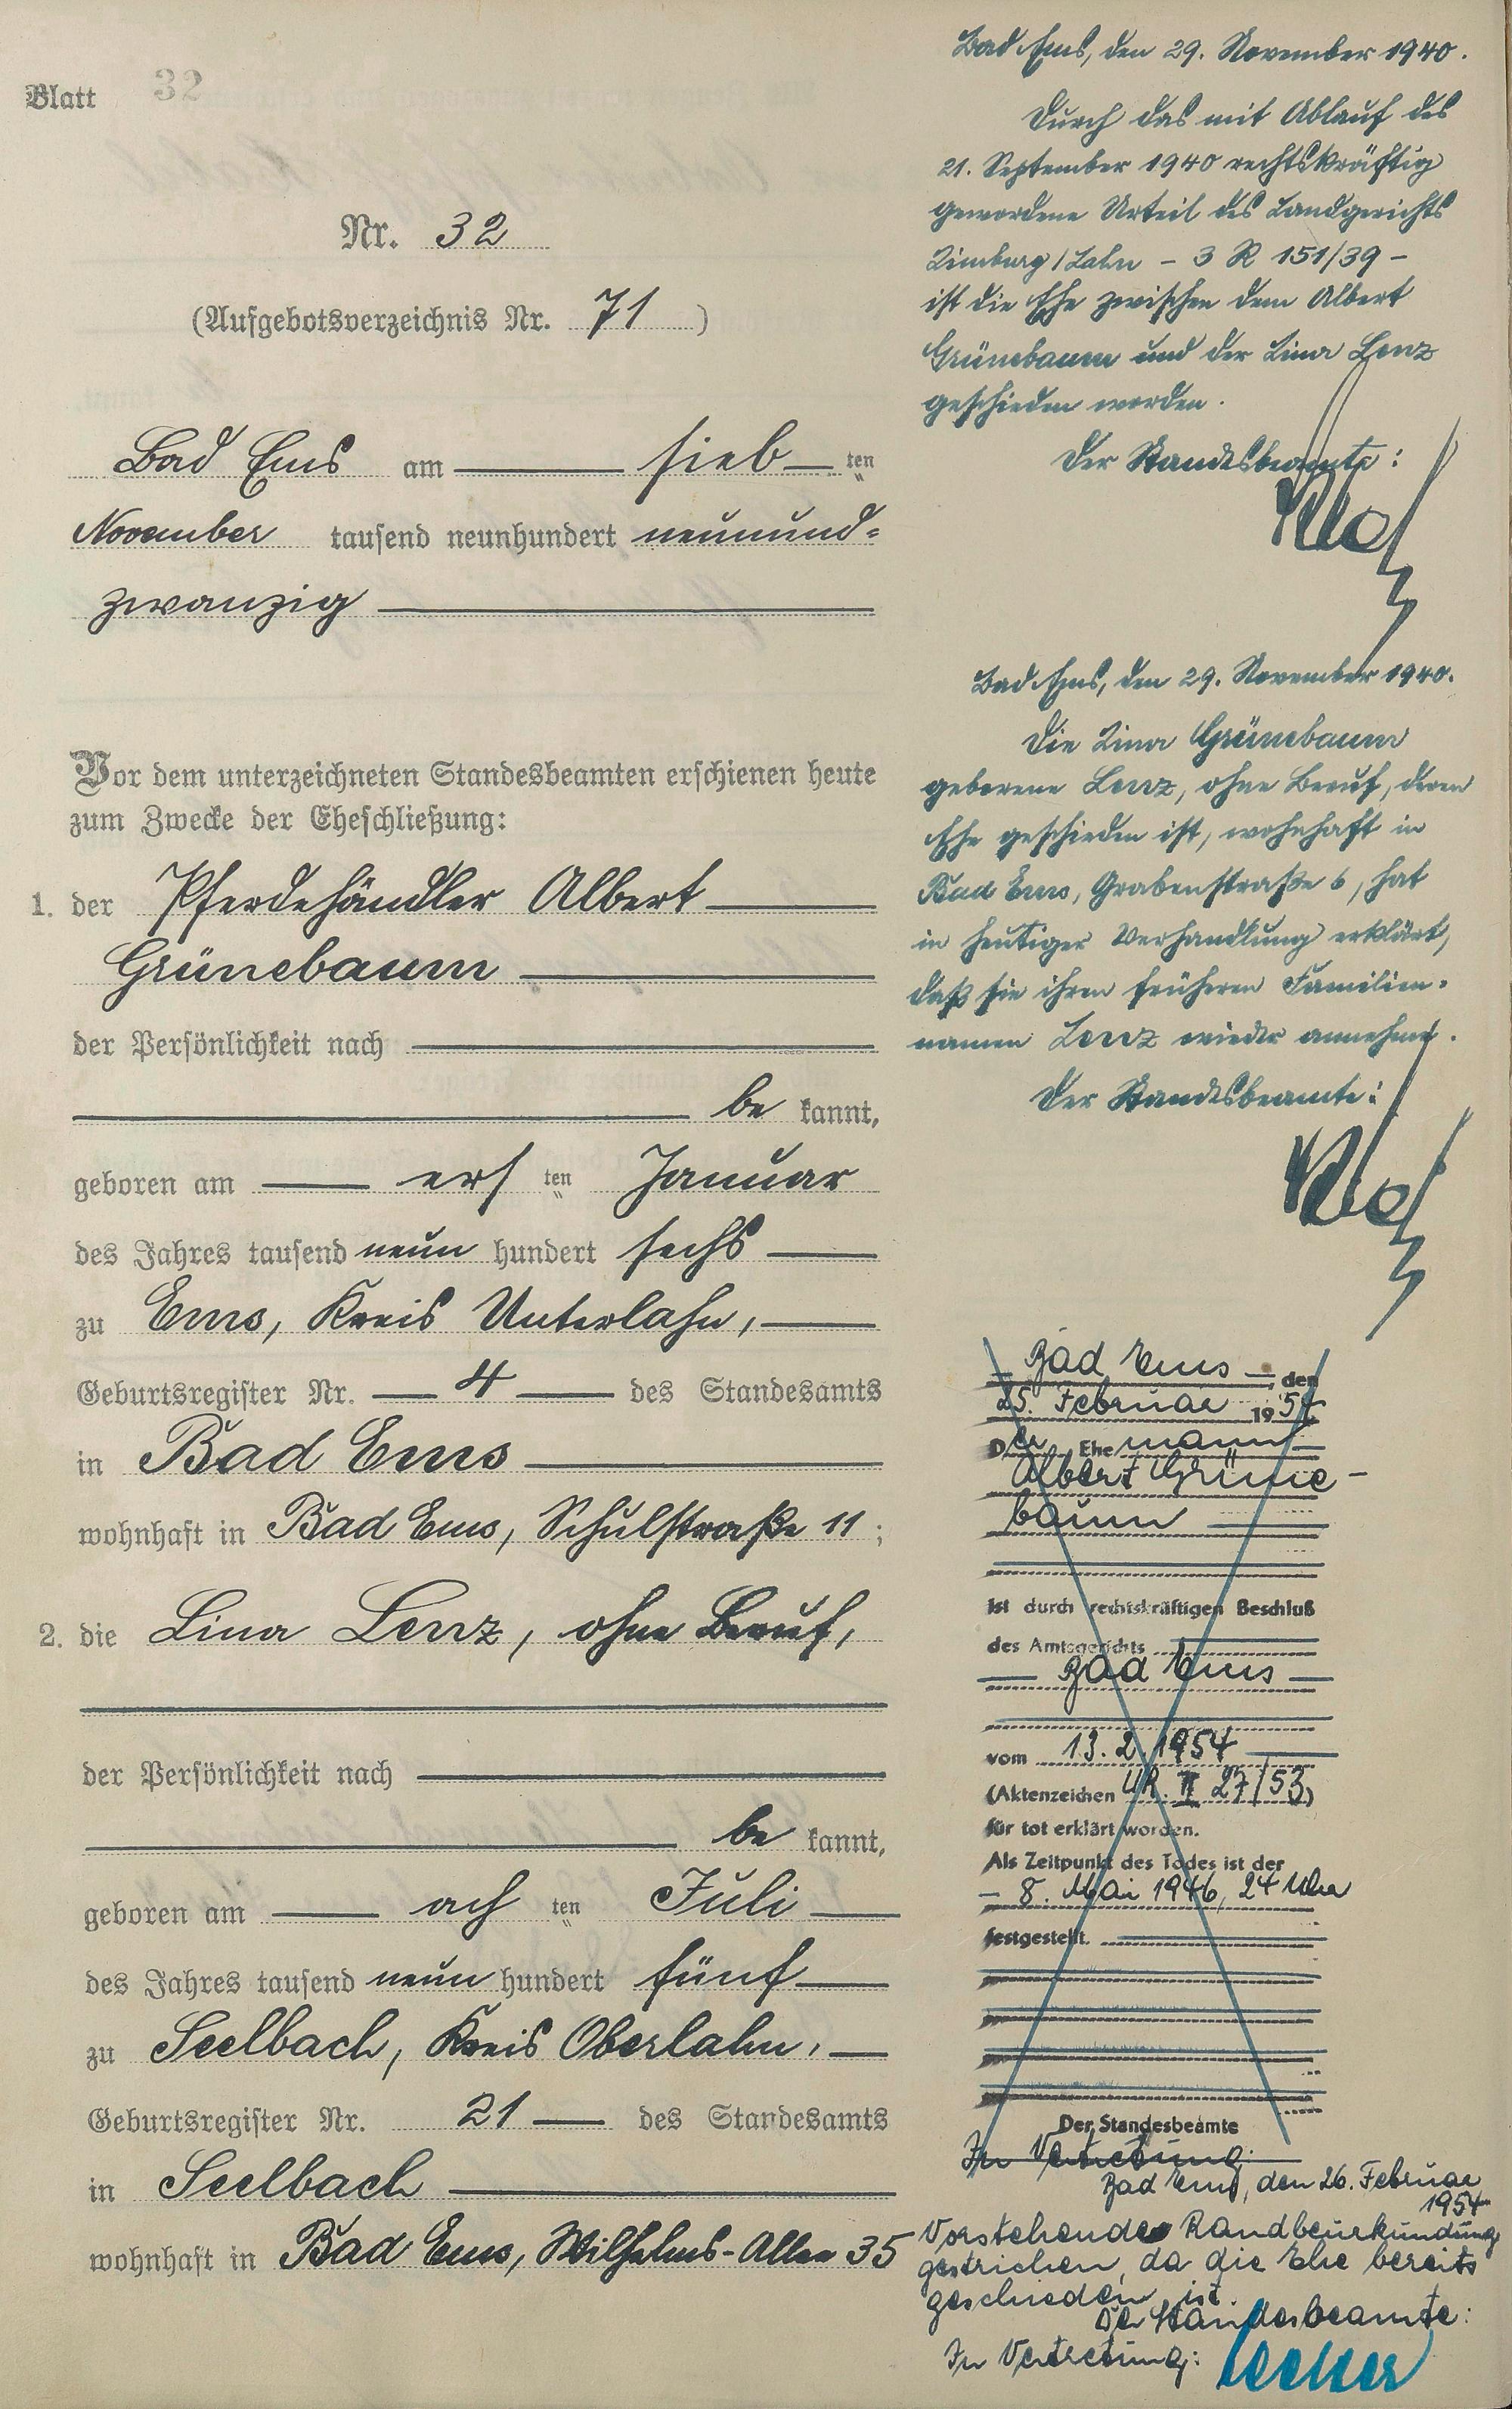 Blatt 32
Nr. 32
(Aufgebotsverzeichnis Nr. 71 )
Bad Ems am sieb ten
November tausend neunhundert neunund-
zwanzig
Vor dem unterzeichneten Standesbeamten erschienen heute
zum Zwecke der Eheschließung:
1. der Pferdehändler Albert
Grünebaum
der Persönlichkeit nach
be kannt,
geboren am ers ten Januar
des Jahres tausend neun hundert sechs
zu Ems, Kreis Unterlahn,
Geburtsregister Nr. 4 des Standesamts
in Bad Ems
wohnhaft in Bad Ems, Schulstraße 11 ;
2. die Lina Lenz, ohne Beruf,
der Persönlichkeit nach
be kannt,
geboren am ach ten Juli
des Jahres tausend neun hundert fünf
zu Seelbach, Kreis Oberlahn,
Geburtsregister Nr. 21 des Standesamts
in Seelbach
wohnhaft in Bad Ems, Wilhelms-Allee 35
Bad Ems, den 29. November 1940.
Durch das mit Ablauf des
21. September 1940 rechtskräftig
gewordene Urteil des Landgerichts
Limburg/Lahn - 3 R 151/39 -
ist die Ehe zwischen dem Albert
Grünebaum und der Lina Lenz
geschieden worden.
Der Standesbeamte:
Bad Ems, den 29. November 1940.
Die Lina Grünebaum
geborene Lenz, ohne Beruf, deren
Ehe geschieden ist, wohnhaft in
Bad Ems, Grabenstraße 6, hat
in heutiger Verhandlung erklärt,
daß sie ihren früheren Familien-
namen Lenz wieder annehme.
Der Standesbeamte:
Bad Ems, den
25. Februar 1954
Der Ehemann
Albert Grüne-
baum
ist durch rechtskräftigen Beschluß
des Amtsgerichts
Bad Ems
vom 13. 2. 1954
(Aktenzeichen UR. II 27/53)
für tot erklärt worden.
Als Zeitpunkt des Todes ist der
- 8. Mai 1946, 24 Uhr
festgestellt.
Der Standesbeamte
In Vertretung:
Bad Ems, den 26. Februar
1954
Vorstehende Randbeurkundung
gestrichen, da die Ehe bereits
geschieden ist.
Der Standesbeamte:
In Vertretung: